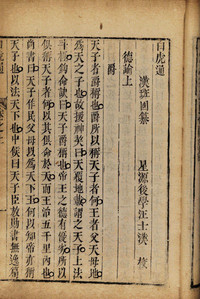 白虎通
漢班固纂 星源後學汪士漢 校
德論上
爵
天子者爵稱也爵所以稱天子者何王者父天母地
為天之子也故援神契曰天覆地載謂之天子上法
斗極鉤命訣曰天子爵稱也帝王之德有優劣所以
俱稱天子者何以其俱命於天而王治五千里內也
尚書曰天子作民父母以為天下王何以知帝亦稱
天子也以法天下也中候曰天子臣放勛書無逸篇
白虎通